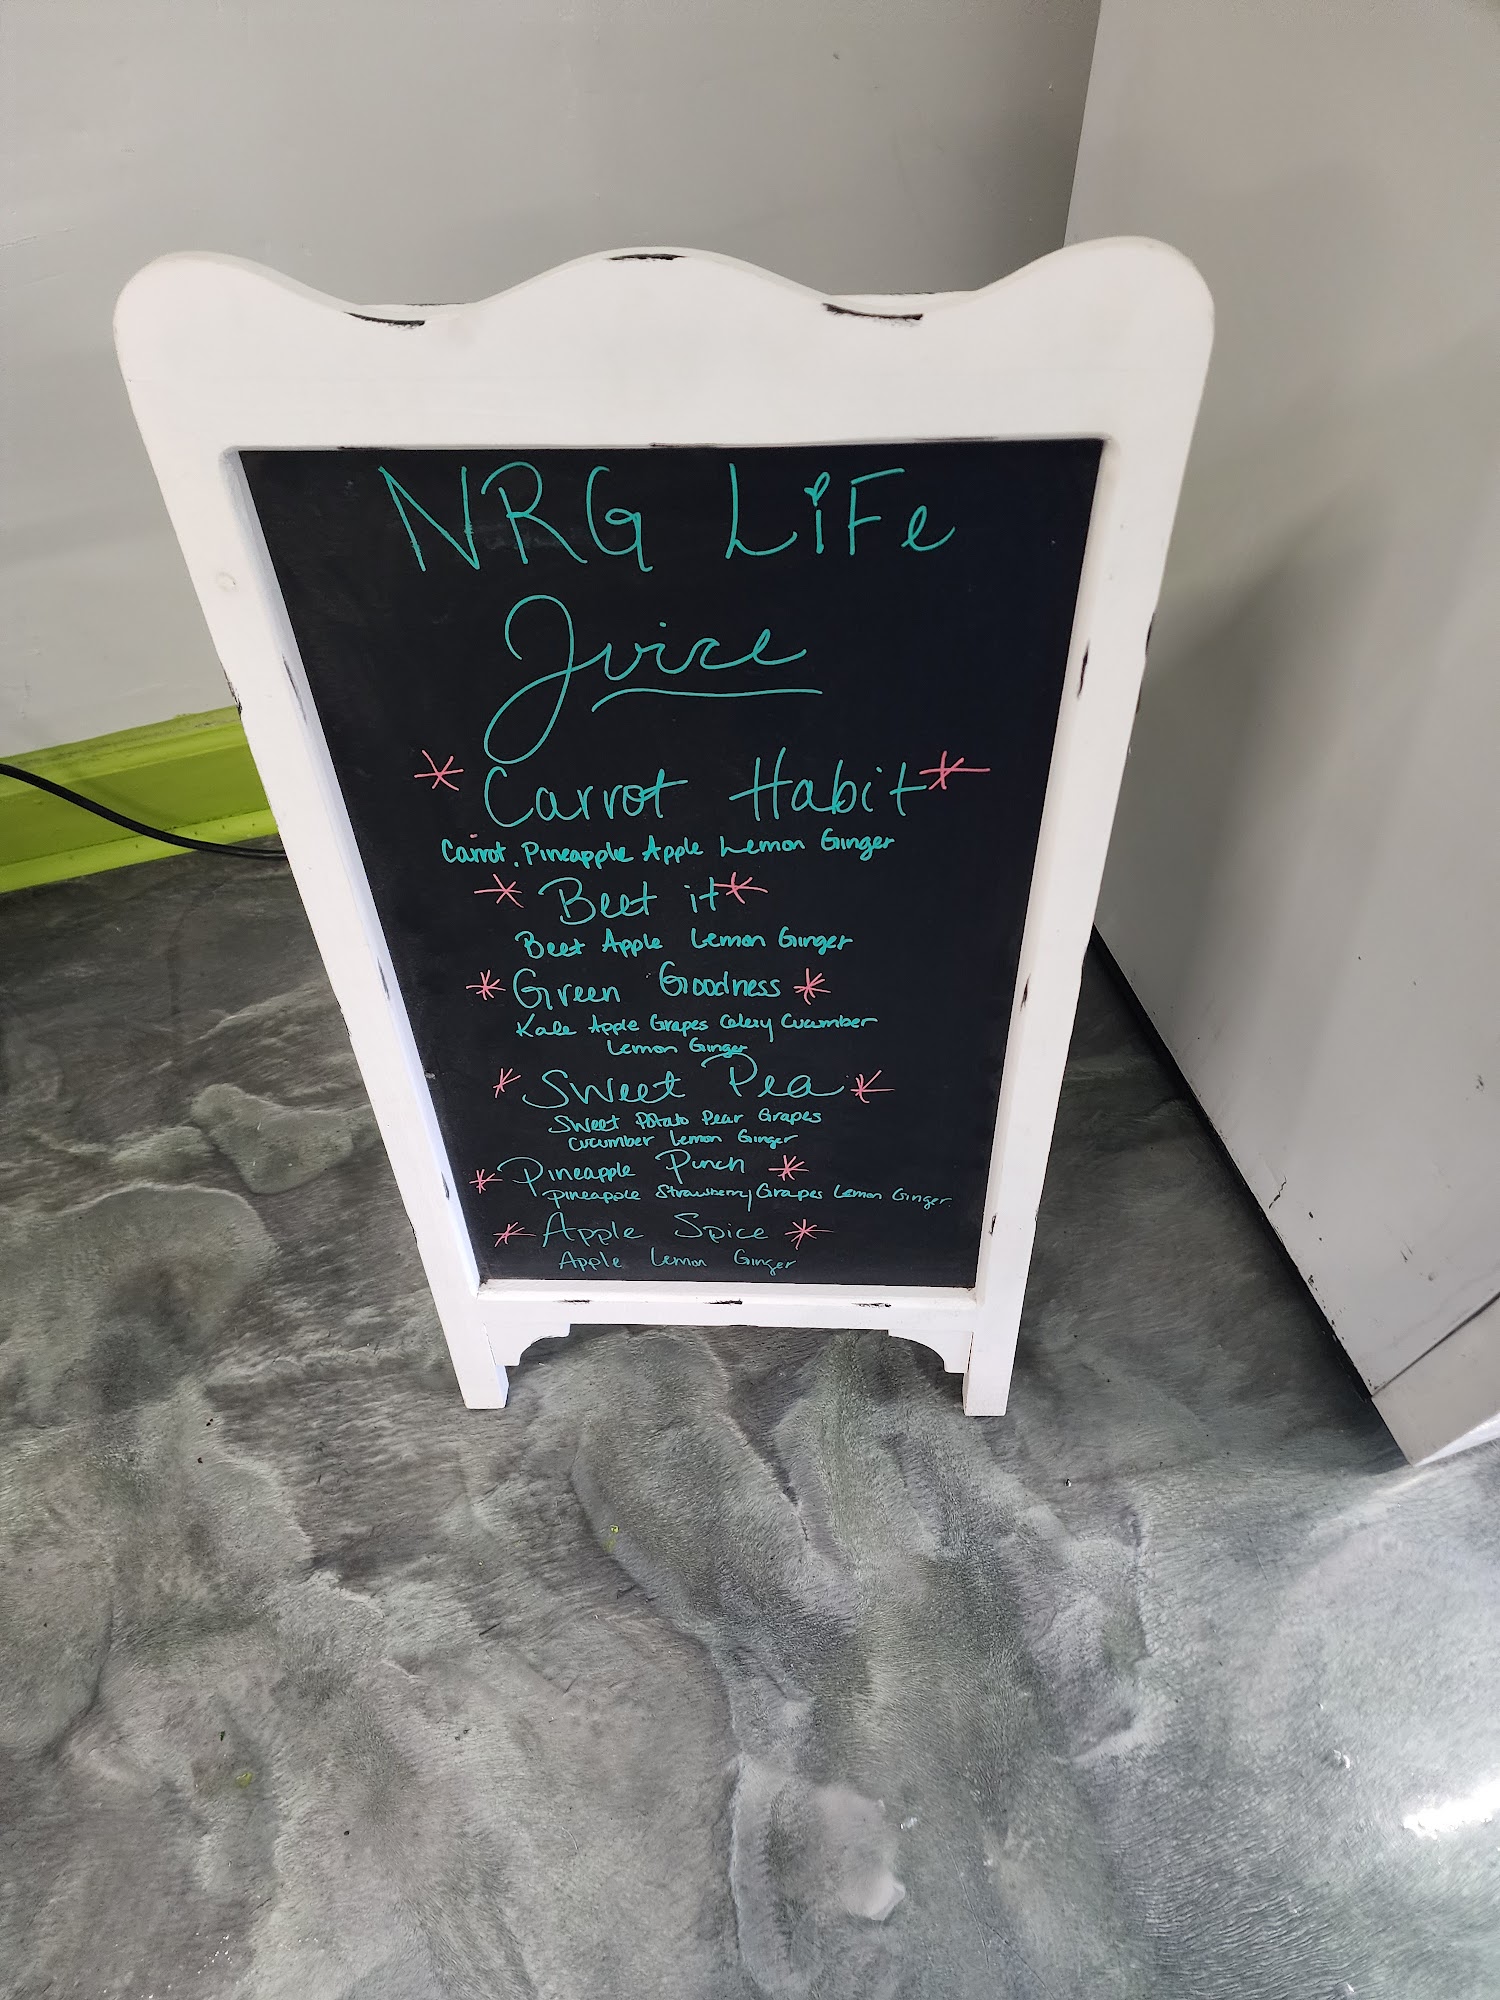 NRG LiFe
Juice
* Carrot Habit *
Carrot, Pineapple Apple Lemon Ginger
* Beet it *
Beet Apple Lemon Ginger
* Green Goodness *
Kale Apple Grapes Celery Cucumber
Lemon Ginger
* Sweet Pea *
Sweet Potato Pear Grapes
Cucumber Lemon Ginger
* Pineapple Punch *
Pineapple Strawberry Grapes Lemon Ginger
* Apple Spice *
Apple Lemon Ginger